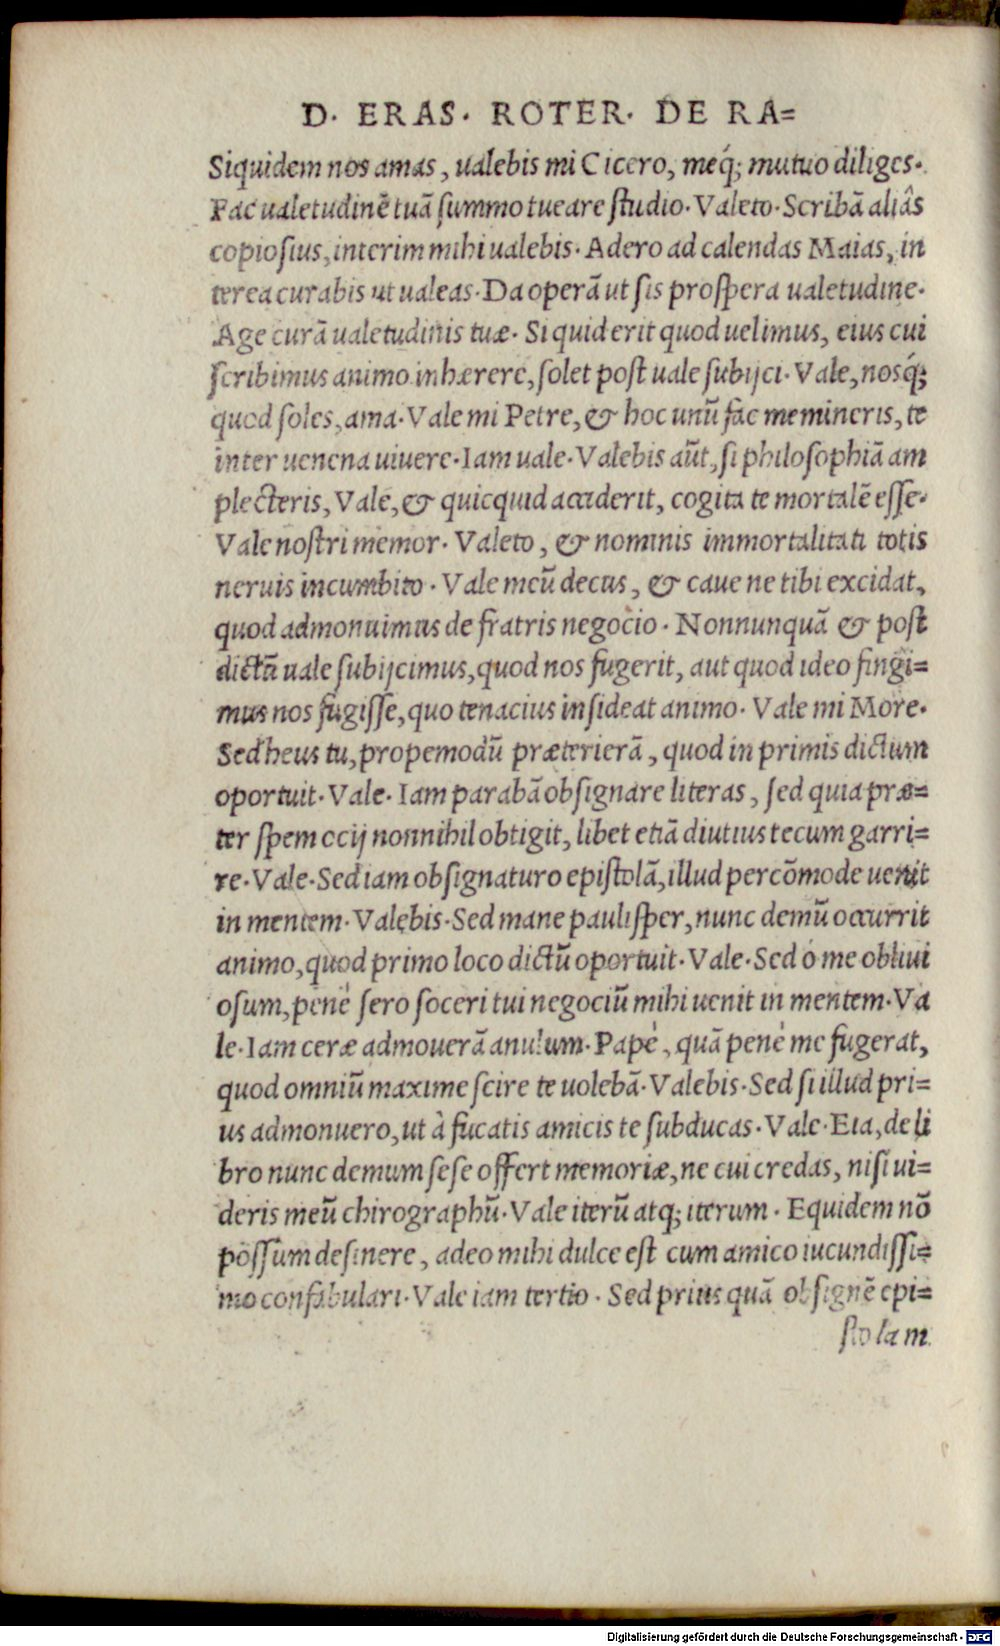 D. ERAS. ROTER. DE RA=
Siquidem nos amas, ualebis mi Cicero, meq́; mutuo diliges.
Fac ualetudinē tuā summo tueare studio. Valeto. Scribā aliâs
copiosius, interim mihi ualebis. Adero ad calendas Maias, in
terea curabis ut ualeas. Da operā ut sis prospera ualetudine.
Age curā ualetudinis tuæ. Si quid erit quod uelimus, eius cui
scribimus animo inhærere, solet post uale subijci. Vale, nosq́;
quod soles, ama. Vale mi Petre, & hoc unū fac memineris, te
inter uenena uiuere. Iam uale. Valebis aūt, si philosophiā am
plecteris, Vale, & quicquid acciderit, cogita te mortalē esse.
Vale nostri memor. Valeto, & nominis immortalitati totis
neruis incumbito. Vale meū decus, & caue ne tibi excidat,
quod admonuimus de fratris negocio. Nonnunquā & post
dictū uale subijcimus, quod nos fugerit, aut quod ideo fingi=
mus nos fugisse, quo tenacius insideat animo. Vale mi More.
Sed heus tu, propemodū præterierā, quod in primis dictum
oportuit. Vale. Iam parabā obsignare literas, sed quia præ=
ter spem ocij nonnihil obtigit, libet etiā diutius tecum garri=
re. Vale. Sed iam obsignaturo epistolā, illud percōmode uenit
in mentem. Valebis. Sed mane paulisper, nunc demū occurrit
animo, quod primo loco dictū oportuit. Vale. Sed ó me obliui
osum, penè sero soceri tui negociū mihi uenit in mentem. Va
le. Iam ceræ admouerā anulum. Papè, quā penè me fugerat,
quod omniū maxime scire te uolebā. Valebis. Sed si illud pri=
us admonuero, ut à fucatis amicis te subducas. Vale. Eia, de li
bro nunc demum sese offert memoriæ, ne cui credas, nisi ui=
deris meū chirographū. Vale iterū atq; iterum. Equidem nō
possum desinere, adeo mihi dulce est cum amico iucundissi=
mo confabulari. Vale iam tertio. Sed prius quā obsignē epi=
stolam
Digitalisierung gefördert durch die Deutsche Forschungsgemeinschaft - DFG